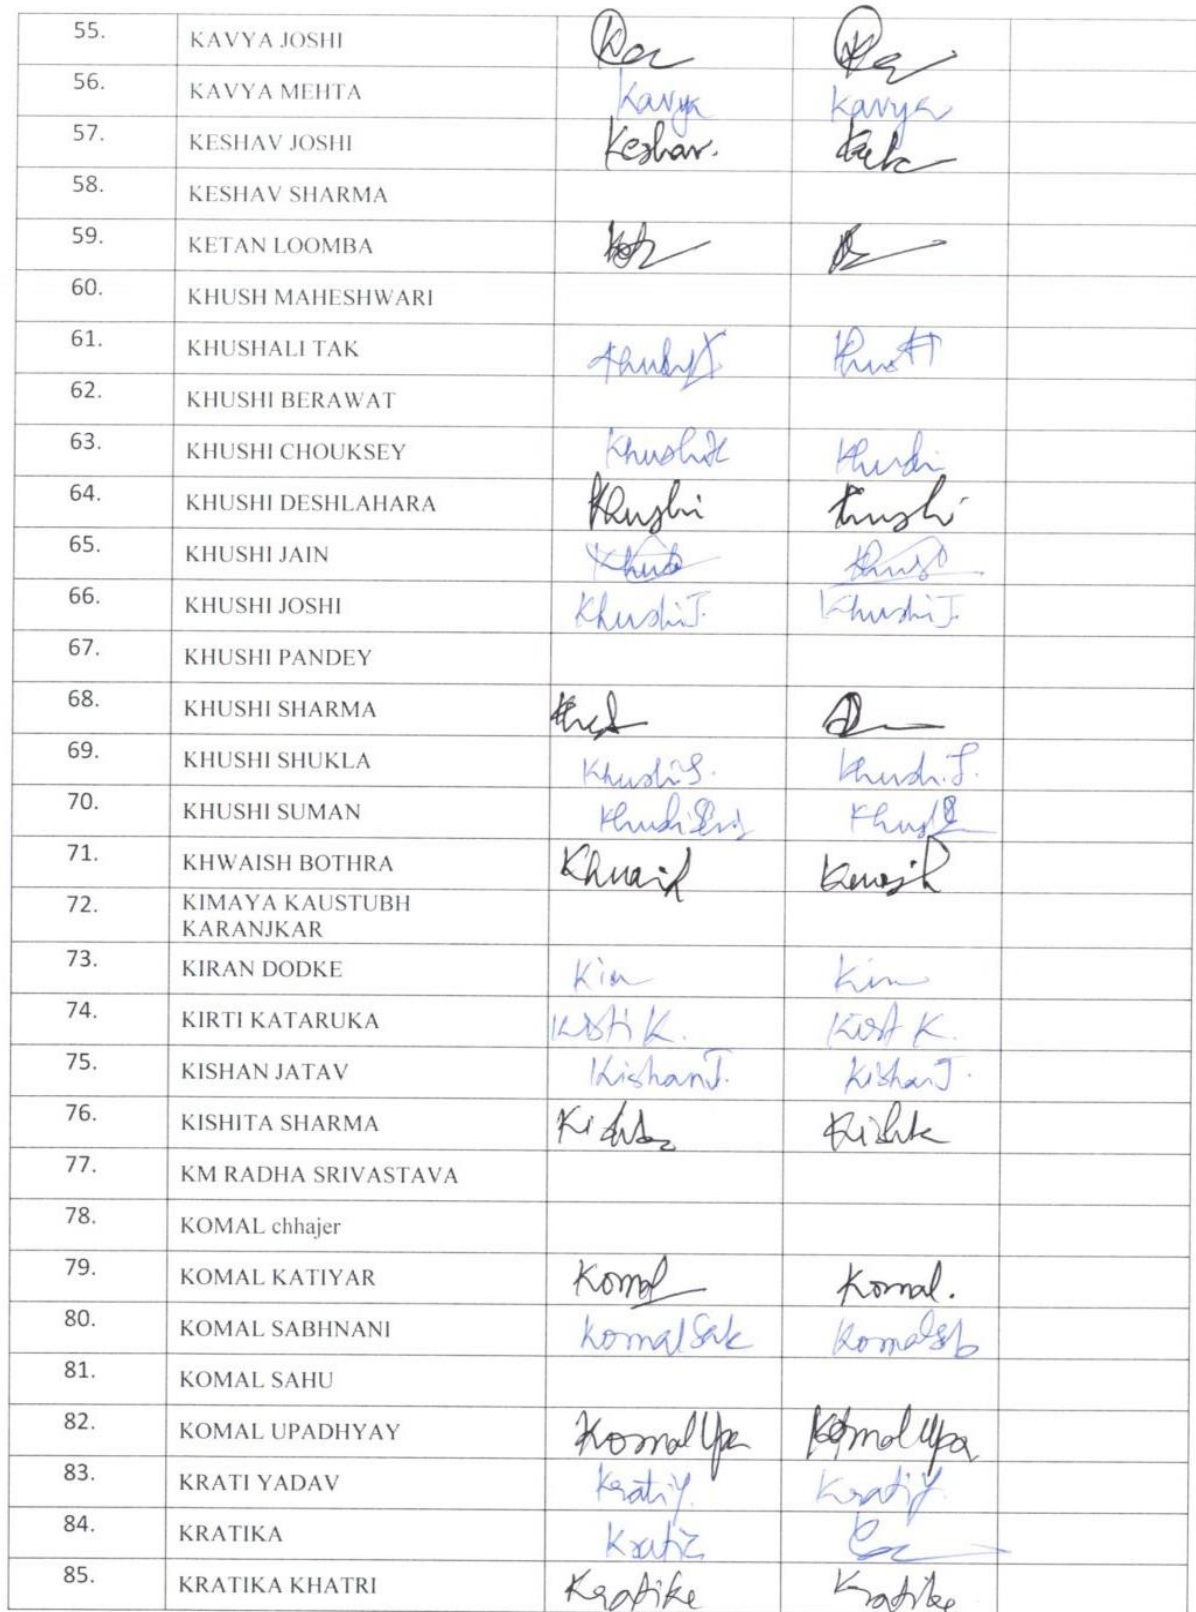 55. KAVYA JOSHI
56. KAVYA MEHTA Kavya Kavya
57. KESHAV JOSHI Keshav.
58. KESHAV SHARMA
59. KETAN LOOMBA
60. KHUSH MAHESHWARI
61. KHUSHALI TAK
62. KHUSHI BERAWAT
63. KHUSHI CHOUKSEY Khushi
64. KHUSHI DESHLAHARA Khushi Khushi
65. KHUSHI JAIN
66. KHUSHI JOSHI Khushi J. Khushi J.
67. KHUSHI PANDEY
68. KHUSHI SHARMA
69. KHUSHI SHUKLA Khushi S. Khushi S.
70. KHUSHI SUMAN
71. KHWAISH BOTHRA
72. KIMAYA KAUSTUBH
KARANJKAR
73. KIRAN DODKE
74. KIRTI KATARUKA Kirti K.
75. KISHAN JATAV Kishan J. Kishan J.
76. KISHITA SHARMA
77. KM RADHA SRIVASTAVA
78. KOMAL chhajer
79. KOMAL KATIYAR Komal Komal.
80. KOMAL SABHNANI Komal Komal
81. KOMAL SAHU
82. KOMAL UPADHYAY Komal Upa Komal Upa
83. KRATI YADAV Krati Y. Krati Y.
84. KRATIKA
85. KRATIKA KHATRI Kratika Kratika